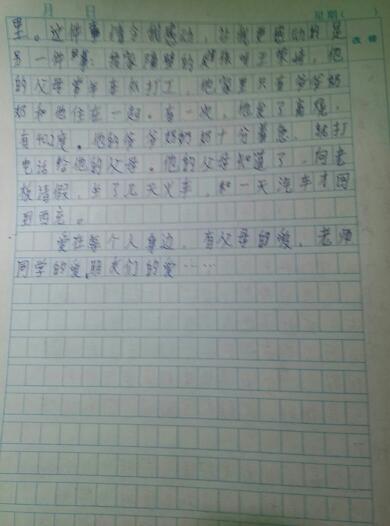 月 日 星期（ ）
改错
里。这件事情令我感动，让我更感动的是
另一件事：我家隔壁的 叫王 ，他
的父母常年在外打工，他家里只有爷爷奶
奶和他住在一起。有一次，他发了高烧，
有40.2度。他的爷爷奶奶十分着急，就打
电话给他的父母。他的父母知道了，向老
板请假，坐了几天火车，和一天汽车才回
到 。
爱在每个人身边，有父母的爱，老师
同学的爱，朋友们的爱……